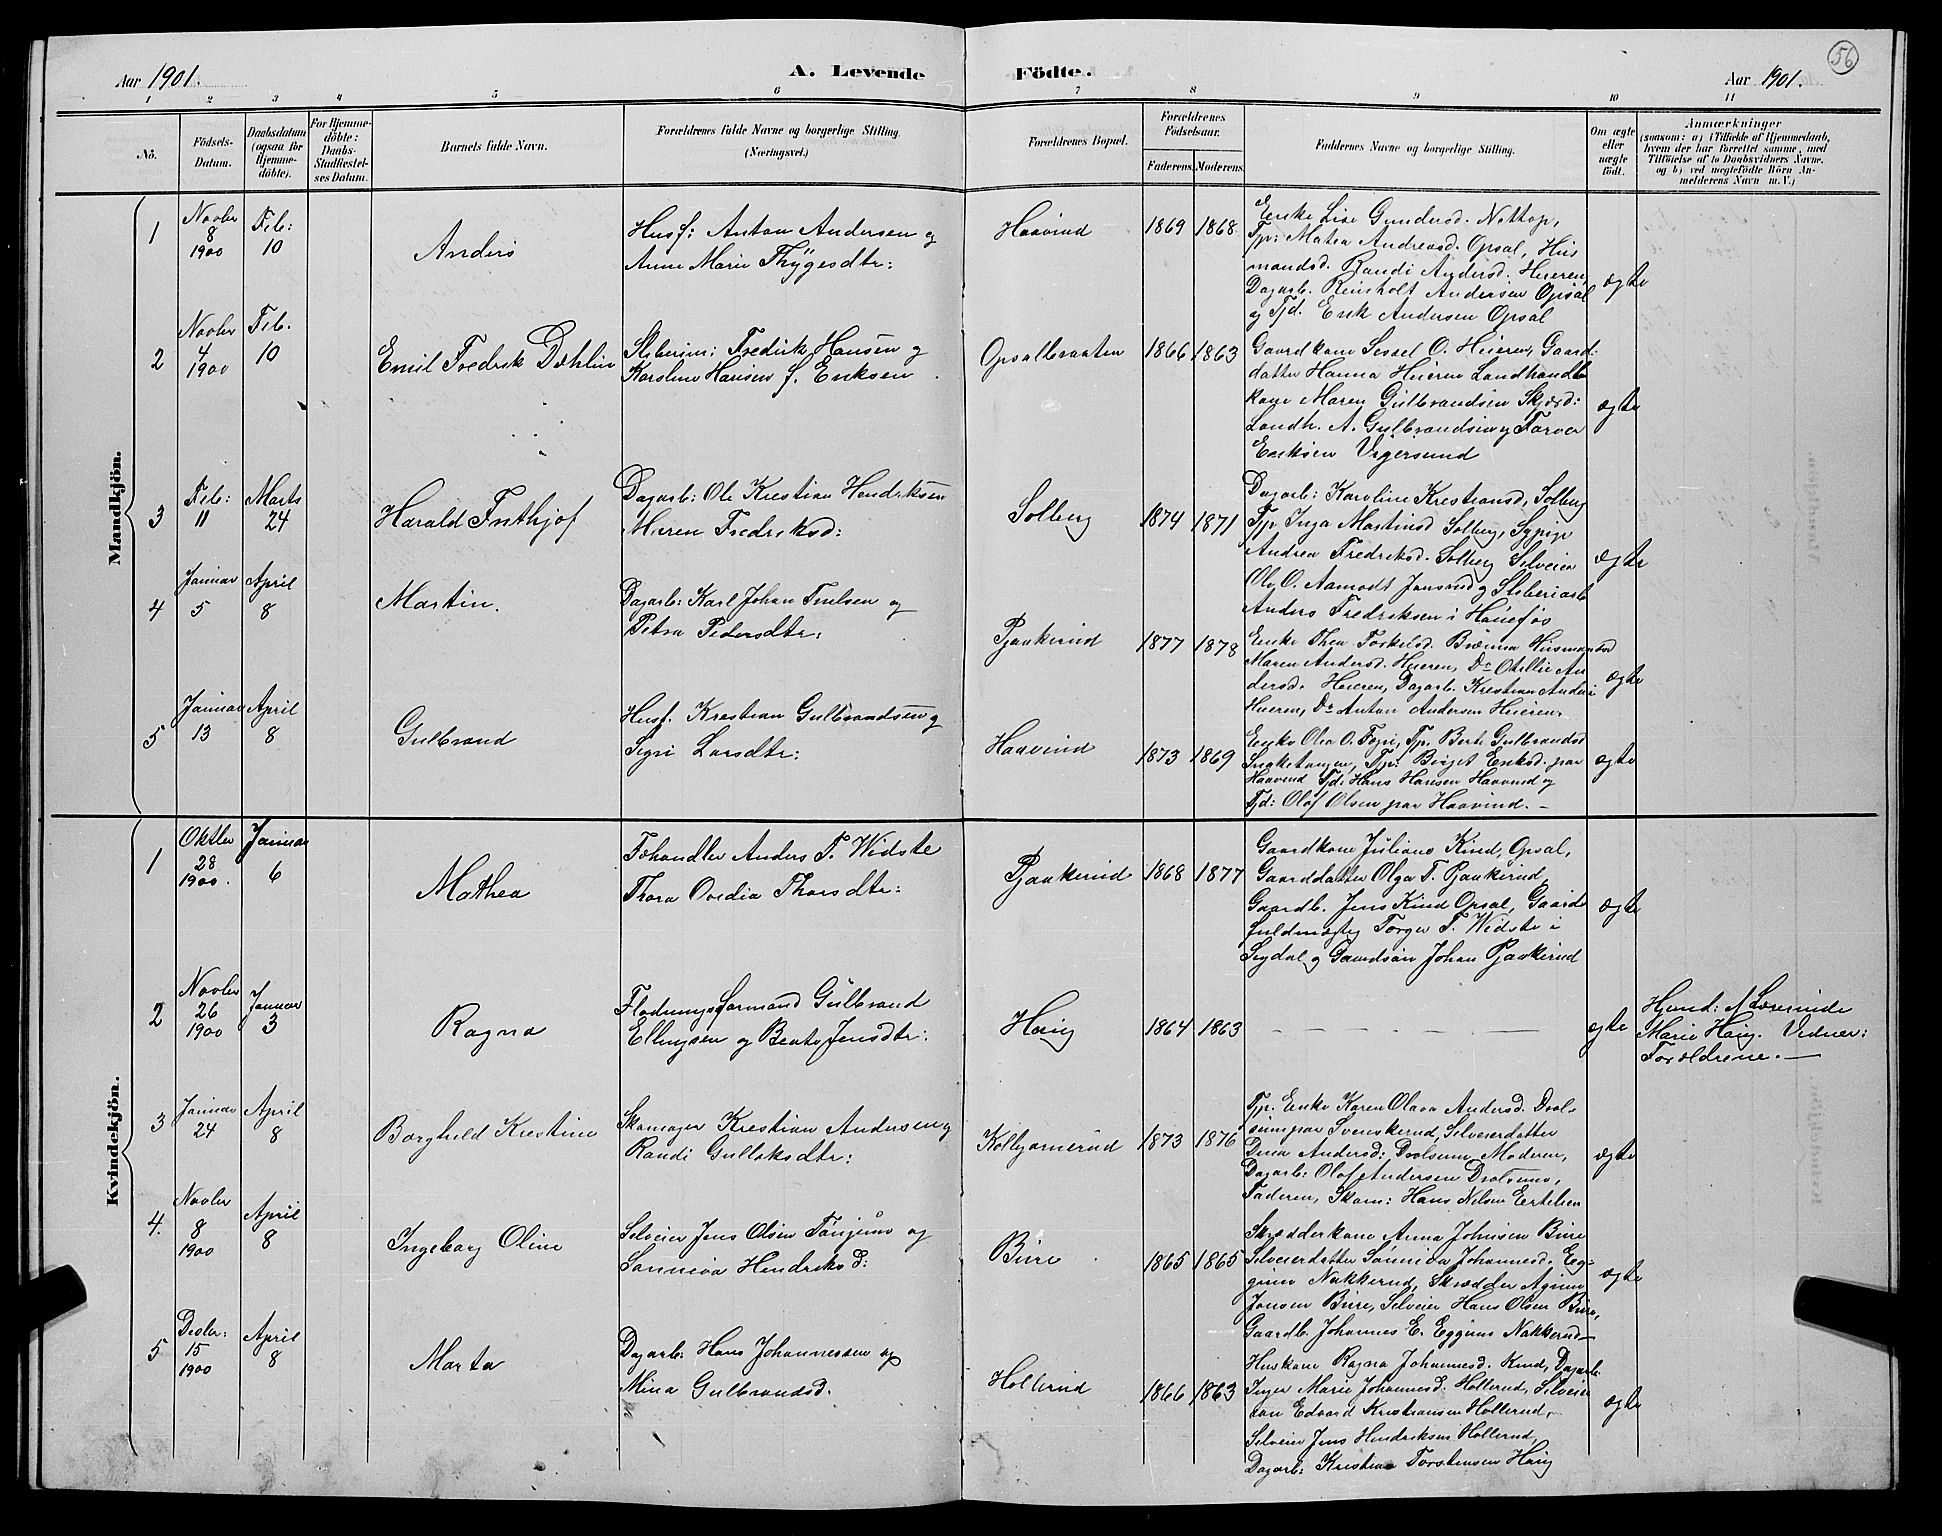 56
Aar 1901. A. Levende Födte. Aar 1901.
1 2 3 4 5 6 7 8 9 10 11
No.
Födsels-
Datum.
Daabsdatum
(ogsaa for
Hjemme-
döbte).
For Hjemme-
döbte:
Daabs-
Stadfæstel-
ses Datum.
Barnets fulde Navn.
Forældrenes fulde Navne og borgerlige Stilling.
(Næringsvei.)
Forældrenes Bopæl.
Forældrenes
Födselsaar.
Faderens. Moderens.
Faddernes Navne og borgerlige Stilling.
Om ægte
eller
uægte
født.
Anmærkninger
(saasom: a) i Tilfælde af Hjemmedaab,
hvem der har forrettet samme, med
Tilföielse af to Daabsvidners Navne,
og b) ved uægtefödte Börn An-
melderens Navn m. V.)
Mandkjön.
1
Novbr
8
1900
Feb:
10
Anders
Husf: Anton Andersen og
Anne Marie Thygesdtr:
Haavind
1869 1868
Enke Lise Gundersd. Nottop,
Tjp: Matea Andreasd. Opsal, Hus
mandsd. Randi Andersd. Heieren,
Dagarb. Reinholt Andersen Opsal
og Tjd. Erik Andersen Opsal
ægte
2
Novbr
4
1900
Feb.
10
Emil Fredrik Dæhlin
Sliberim: Fredrik Hansen og
Karoline Hansen f. Eriksen
Opsalbraaten
1866 1863
Gaardkone Sessel O. Heieren, Gaard-
datter Hanna Heieren Landhandl
kone Maren Gulbrandsen Skjærd:
Landh. A. Gulbrandsen og Torval
Eriksen Vigersund
ægte
3
Feb:
11
Marts
24
Harald Frithjof
Dagarb: Ole Kristian Hendriksen
Maren Fredriksd:
Solberg
1874 1871
Dagarb: Karoline Kristiansd, Solberg
Tjp Inga Martinsd Solberg, Sypige
Andrea Fredriksd. Solberg Selveier
Ole O. Aamodt Jonsrud og Sliberiarb
Anders Fredriksen i Hönefos
ægte
4
Januar
5
April
8
Martin.
Dagarb: Karl Johan Truelsen og
Petra Pedersdtr:
Pjaakerud
1877 1878
Enke Thea Torkelsd. Husmandsd
Maren Andersd. Heieren, Do Otillie An
dersd. Heieren, Dagarb. Kristian Anders
Heieren, Do Anton Andersen Heieren.
ægte
5
Januar
13
April
8
Gulbrand
Husf. Kristian Gulbrandsen og
Sigri Larsdtr:
Haavind
1873 1869
Enke Olea O. Tjp. Berte Gulbrandsd
Tjp: Birgit Eriksd. paa
Haavind Tjd: Hans Hansen Haavind og
Tjd: Olof Olsen paa Haavind. —
ægte
Kvindekjön.
1
Oktbr
28
1900.
Januar
6
Mathea
Fehandler Anders T. Widste
Thora Ovedia Thorsdtr:
Pjaakerud
1868 1877
Gaardkone Juliane Kind, Opsal,
Gaarddatter Olga T. Pjaakerud,
Gaardb. Jens Kind Opsal, Gaards
fuldmægtig Torger T. Widste i
Sigdal og Gaardsön Johan Pjaakerud
ægte
2
Novbr
26
1900
Januar
3
Ragna
Flødningsformand Gulbrand
Ellingsen og Beate Jensdtr:
Haug
1864 1863
— — — — — —
ægte
Hjemd: Af Lærerinde
Marie Haug. Vidner:
Forældrene. —
3
Januar
24
April
8
Borghild Kristine
Skomager Kristian Andersen og
Randi Gulliksdtr:
Kolbjørnerud
1873 1876
Tjp. Enke Karen Olava Andersd. Drol-
sum paa Svenskerud, Selveierdatter
Dina Andersd: Drolsum, Moderen,
Dagarb: Olof Andersen Drolsum,
Faderen, Skom: Hans Nilsen Ertelien
ægte
4.
Novbr
8
1900
April
8
Ingeborg Oline
Selveier Jens Olsen Tonjum og
Sønneva Hendriksd:
Bure
1865 1865
Skrædderkone Anna Johnsen Bure
Selveierdatter Sønneva Johannesd. Eg-
gum Nakkerud, Skrædder
Jonsen Bure, Selveier Hans Olsen Bure,
Gaardb. Johannes E. Eggum Nakkerud—
ægte
5
Desbr:
15
1900
April
8
Marta
Dagarb: Hans Johannessen og
Mina Gulbrandsd.
Hollerud
1866 1863
Huskone Ragna Johannesd. Kind, Dagarb.
Inger Marie Johannesd. Hollerud, Selveier
søn Edvard Kristiansen Hollerud,
Selveier Jens Hendriksen Hollerud,
Dagarb: Kristian Torstensen Haug
ægte